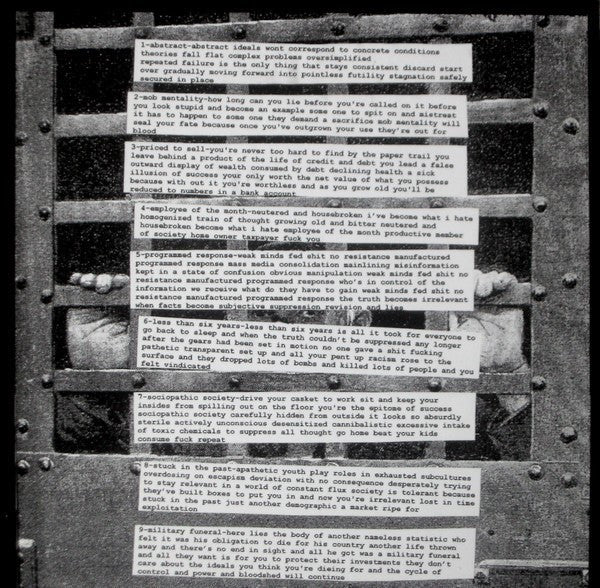 1-abstract-abstract ideals wont correspond to concrete conditions
theories fall flat complex problems oversimplified
repeated failure is the only thing that stays consistent discard start
over gradually moving forward into pointless futility stagnation safely
secured in place
2-mob mentality-how long can you lie before you're called on it before
you look stupid and become an example some one to spit on and mistreat
it has to happen to some one they demand a sacrifice mob mentality will
seal your fate because once you've outgrown your use they're out for
blood
3-priced to sell-you're never too hard to find by the paper trail you
leave behind a product of the life of credit and debt you lead a false
outward display of wealth consumed by debt declining health a sick
illusion of success your only worth the net value of what you possess
because with out it you're worthless and as you grow old you'll be
reduced to numbers in a bank account
4-employee of the month-neutered and housebroken i've become what i hate
homogenized train of thought growing old and bitter neutered and
housebroken become what i hate employee of the month productive member
of society home owner taxpayer fuck you
5-programmed response-weak minds fed shit no resistance manufactured
programmed response mass media consolidation mainlining misinformation
kept in a state of confusion obvious manipulation weak minds fed shit no
resistance manufactured programmed response who's in control of the
information we receive what do they have to gain weak minds fed shit no
resistance manufactured programmed response the truth becomes irrelevant
when facts become subjective suppression revision and lies
6-less than six years-less than six years is all it took for everyone to
go back to sleep and when the truth couldn't be suppressed any longer
after the gears had been set in motion no one gave a shit fucking
pathetic transparent set up and all your pent up racism rose to the
surface and they dropped lots of bombs and killed lots of people and you
felt vindicated
7-sociopathic society-drive your casket to work sit and keep your
insides from spilling out on the floor you're the epitome of success
sociopathic society carefully hidden from outside it looks so absurdly
sterile actively unconscious desensitized cannibalistic excessive intake
of toxic chemicals to suppress all thought go home beat your kids
consume fuck repeat
8-stuck in the past-apathetic youth play roles in exhausted subcultures
overdosing on escapism deviation with no consequence desperately trying
to stay relevant in a world of constant flux society is tolerant because
they've built boxes to put you in and now you're irrelevant lost in time
stuck in the past just another demographic a market ripe for
exploitation
9-military funeral-here lies the body of another nameless statistic who
felt it was his obligation to die for his country another life thrown
away and there's no end in sight and all he got was a military funeral
and all they want is for you to protect their investments they don't
care about the ideals you think you're dieing for and the cycle of
control and power and bloodshed will continue